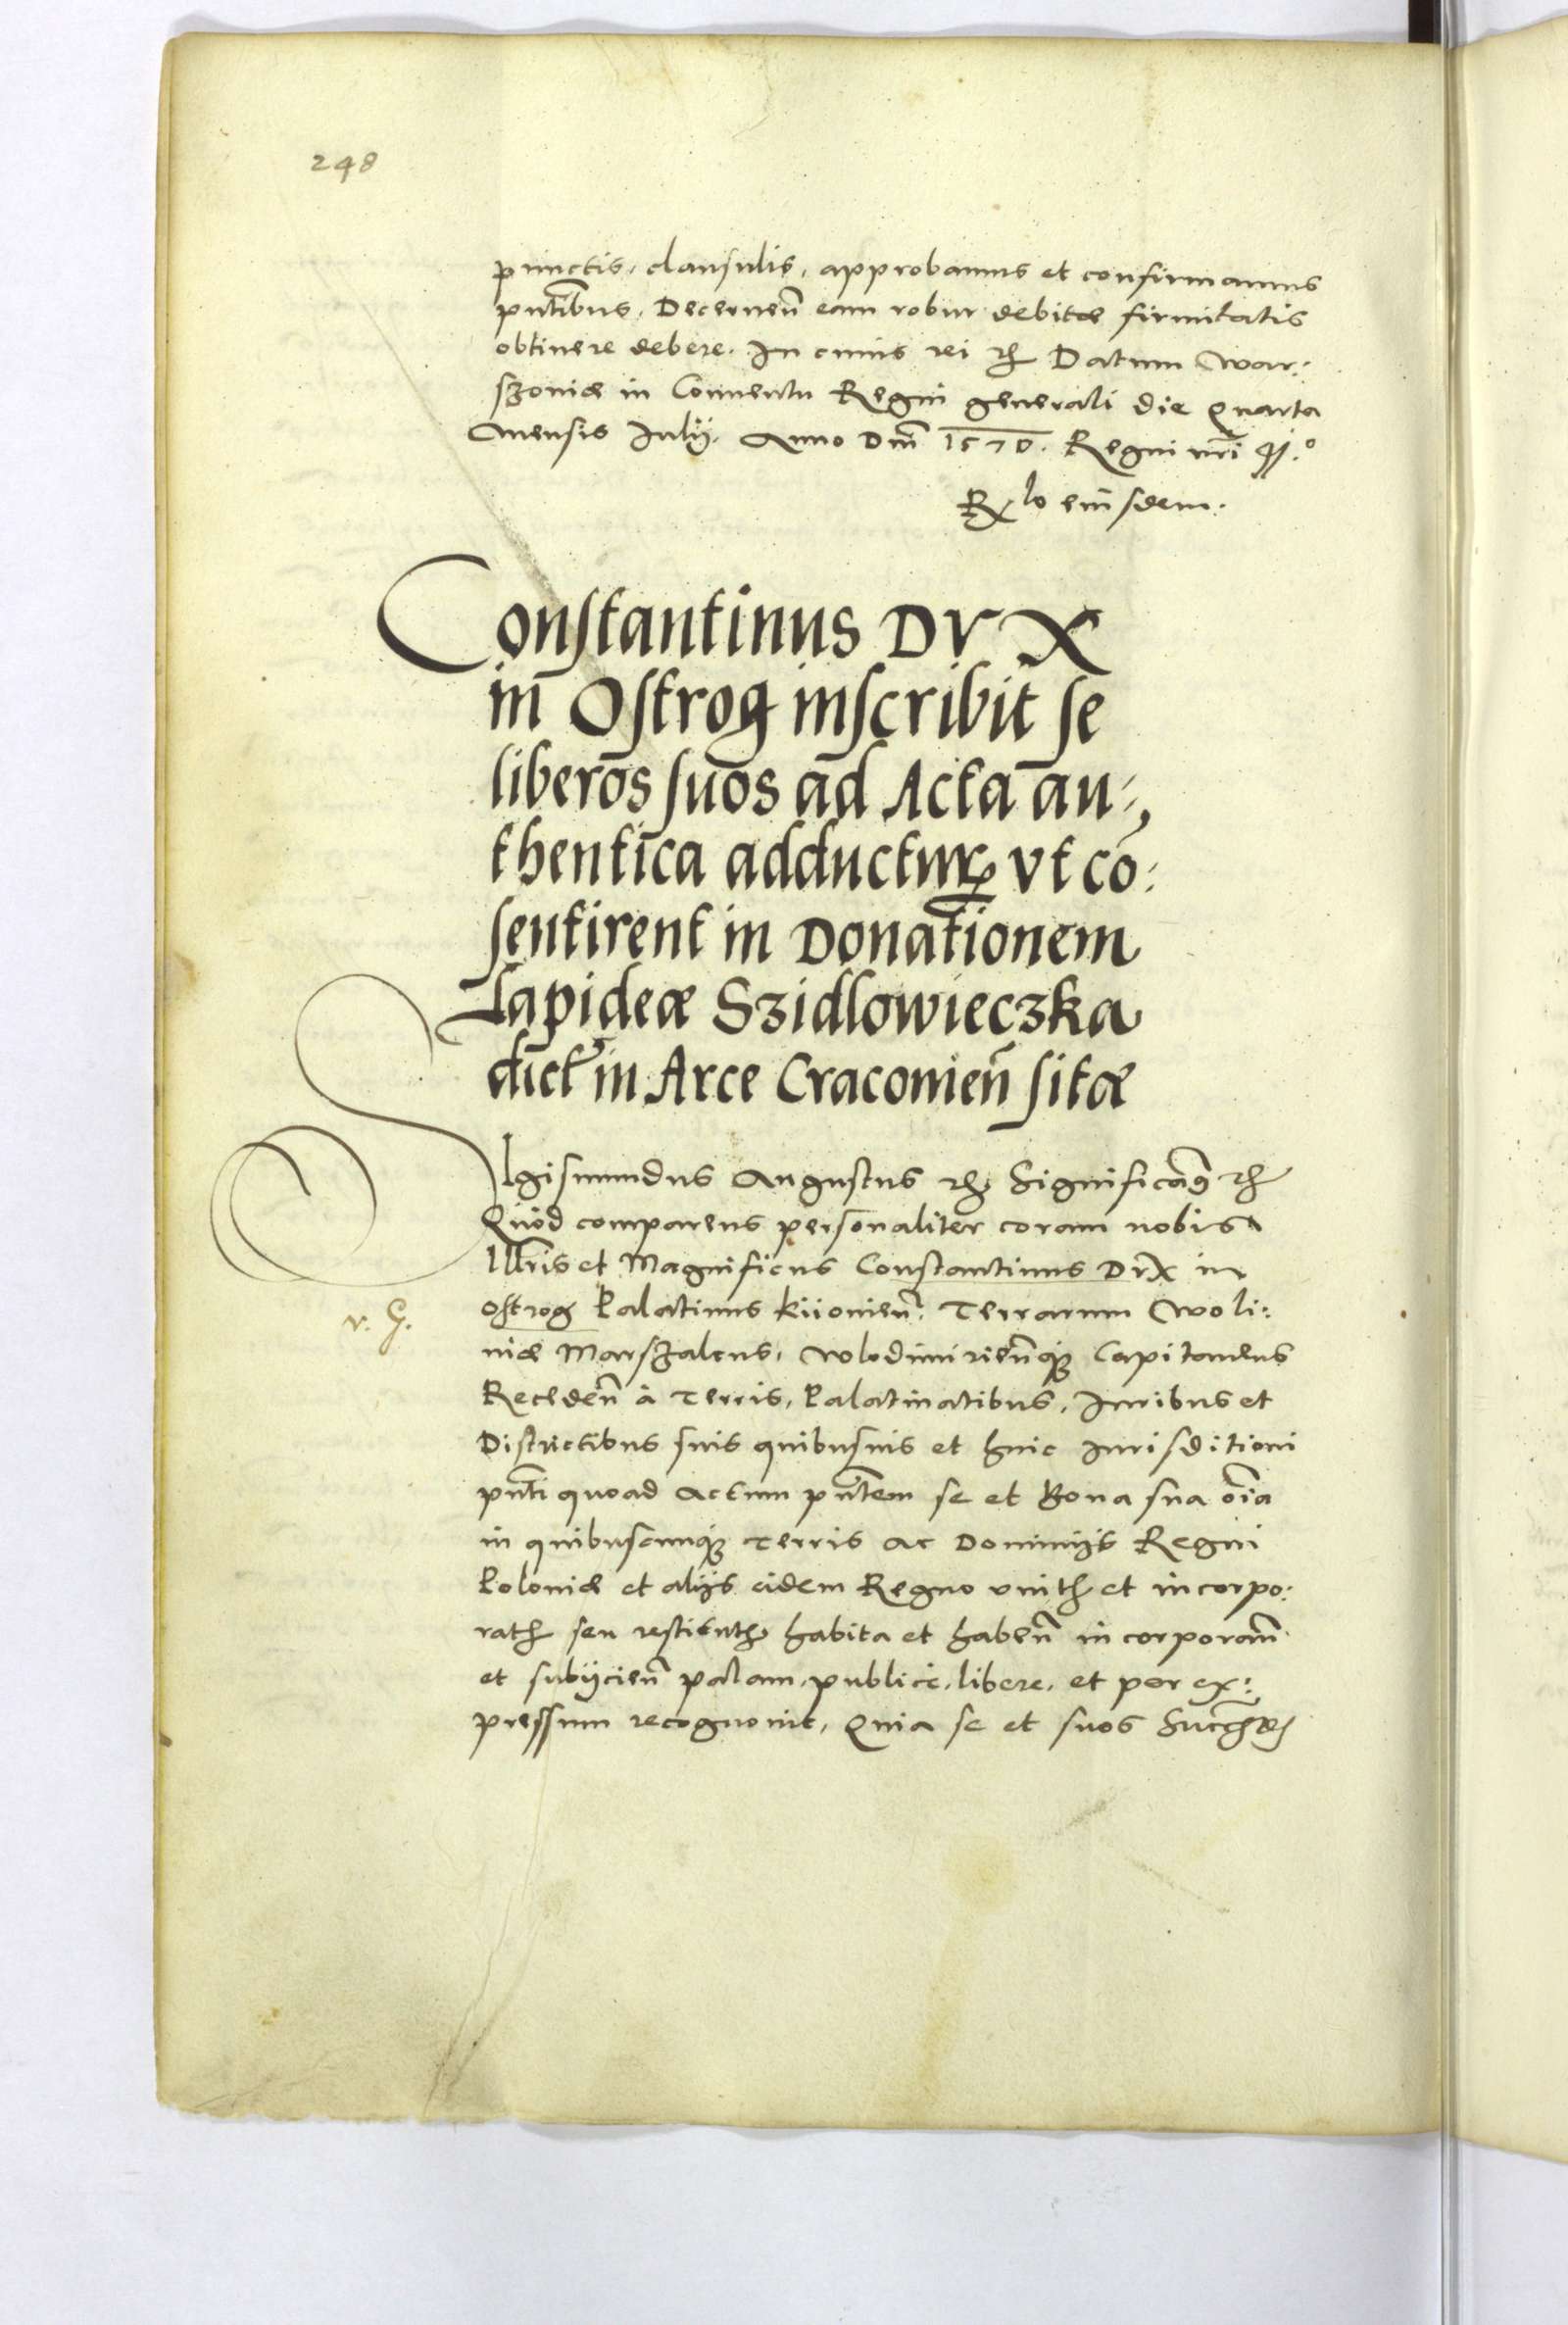 248
punctis, clausulis, approbamus et confirmamus
pñtibus. Decerneñ eam robur debitæ firmitatis
obtinere debere. In cuius rei etc Datum War:
szoviæ in Conventu Regni generali die Quarta
Mensis Iulij. Anno Dñi 1570. Regni nri
Rlo eiusdem.
Constantinus DVX
in Ostrog inscribit se
liberos suos ad Acta au:
thentica adductur vt co:
sentirent in Donationem
Lapideæ Szidlowieczka
dict in Arce Cracovieñ sitæ
SIgismundus Augustus etc. Significam9 etc
Quod comparens personaliter coram nobis
Illris et Magnificus Constantinus DVX in
v. G.
Ostrog Palatinus Kiiovieñ. Terrarum Woli:
niæ Marszalcus, Wlodimirieñq3 Capitaneus
Recedeñ à Terris, Palatinatibus, Iuribus et
Districtibus suis quibusuis et huic Iurisditioni
pñti quoad Actum pñtem se et Bona sua oīa
in quibuscunq3 Terris ac Dominijs Regni
Poloniæ et alijs eidem Regno vnit et incorpo:
rat seu restitut habita et habeñ incorporañ
et subijcieñ palam, publicè, libere, et per ex:
pressum recognovit, Quia se et suos Succ